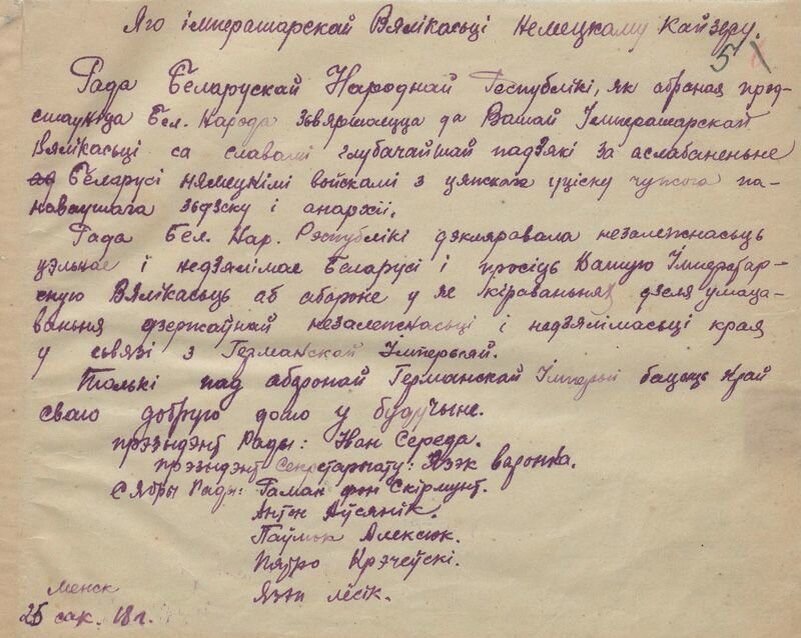 Яго імператарскай Вялікасьці Немецкаму Кайзеру.
5
Рада Беларускай Народнай Рэспублікі, як абраная прэд-
стаўніца Бел. Народа зьвяртаецца да Вашай Імператарскай
Вялікасьці са славамі глубачайшай падзякі за аслабаненьне
Беларусі нямецкімі войскамі з цяжкага уціску чужога па-
наваўшага зьдзеку і анархіі.
Рада Бел. Нар. Рэспублікі дэкляравала незалежнасьць
цэльнае і недзялімае Беларусі і просіць Вашую Імператар-
скую Вялікасьць аб абароне у яе кіраваньнях дзеля умаца-
ваньня дзержаўнай незалежнасьці і недзялімасьці края
у сьвязі з Германскай Імперыяй.
Толькі пад абаронай Германскай Імперыі бачыць Край
сваю добрую долю у будучыне.
прэзыдэнт Рады: Іван Середа.
прэзыдэнт Секретарыату: Язэк варонка.
Сябры Рады: Раман фон Скірмунт.
Антон Аўсянік.
Паўлюк Алексюк.
Пятро Крэчеўскі.
Язэп лёсік.
Менск
25 сак. 18 г.